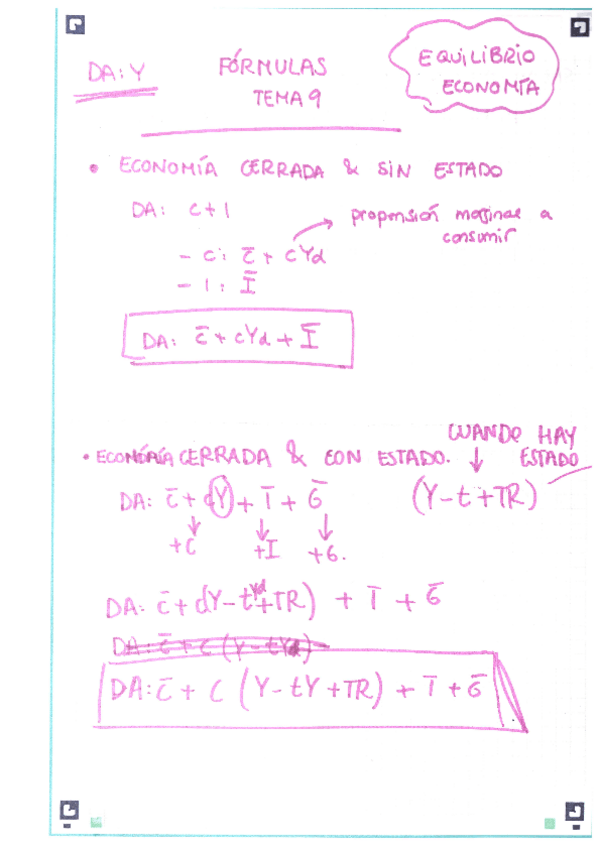 DA: Y
FÓRMULAS
TEMA 9
EQUILIBRIO
ECONOMÍA
• ECONOMÍA CERRADA & SIN ESTADO
DA: C + I
propensión marginal a
consumir
- C: C̅ + cYd
- I: I̅
DA: C̅ + cYd + I̅
CUANDO HAY
ESTADO
• ECONOMÍA CERRADA & CON ESTADO. ↓
DA: C̅ + c(Y) + I̅ + G̅
(Y - t + TR)
+C +I +G.
DA: C̅ + c(Y - tYd + TR) + I̅ + G̅
DA: C̅ + C (Y - tYd)
DA: C̅ + C (Y - tY + TR) + I̅ + G̅